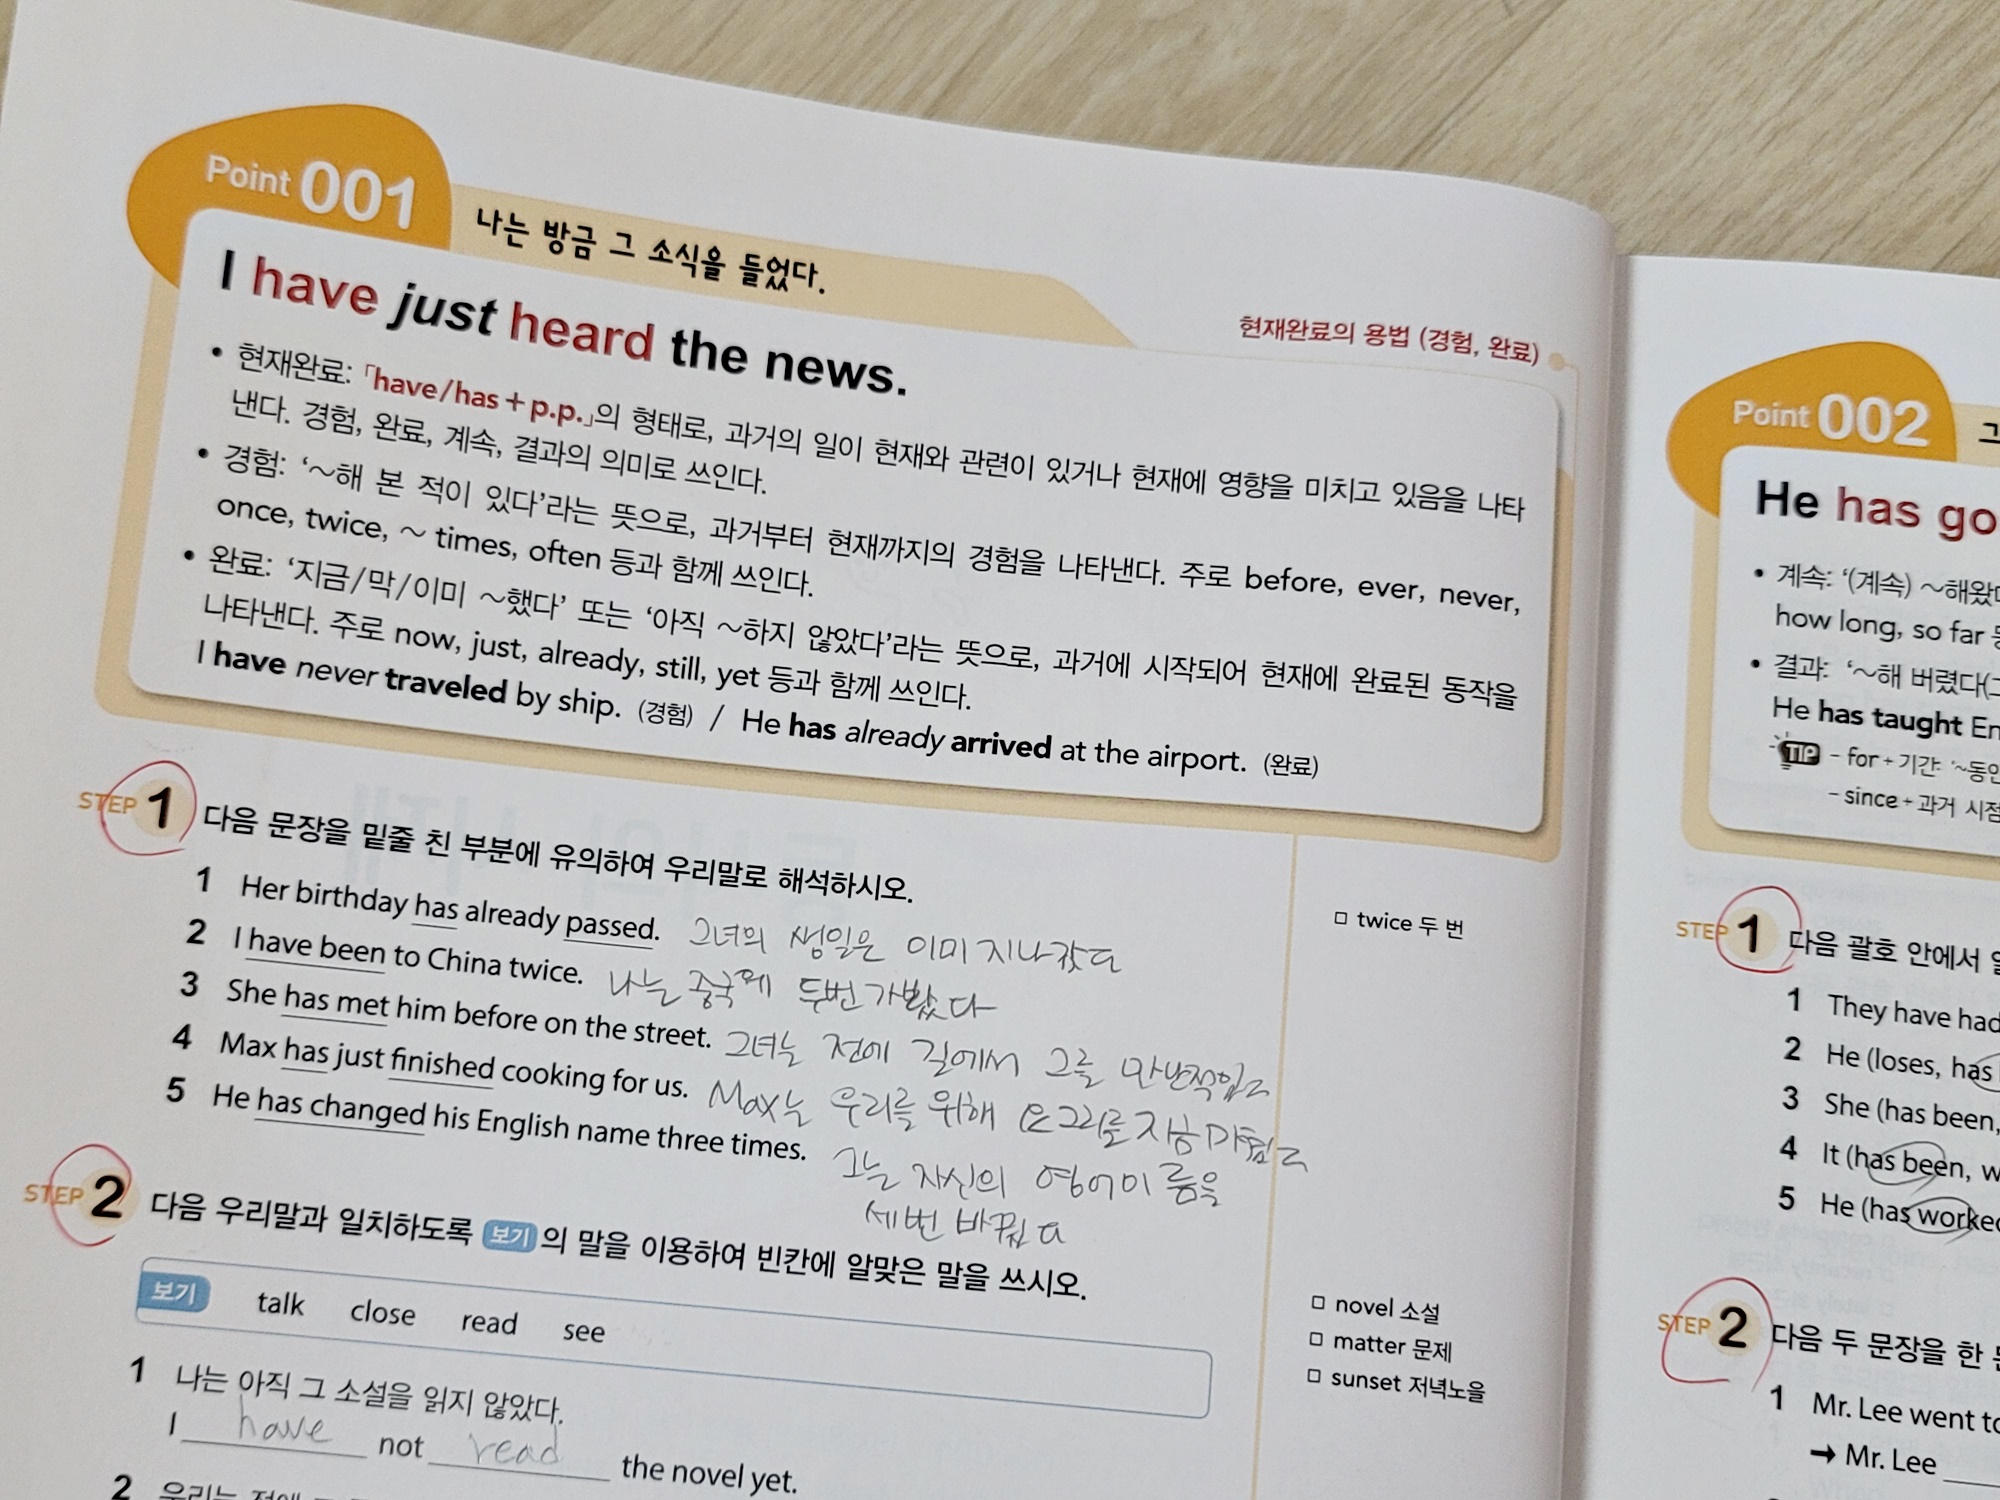 Point 001
나는 방금 그 소식을 들었다.
I have just heard the news.
현재완료의 용법 (경험, 완료)
• 현재완료: 「have/has + p.p.」의 형태로, 과거의 일이 현재와 관련이 있거나 현재에 영향을 미치고 있음을 나타
낸다. 경험, 완료, 계속, 결과의 의미로 쓰인다.
• 경험: ‘~해 본 적이 있다’라는 뜻으로, 과거부터 현재까지의 경험을 나타낸다. 주로 before, ever, never,
once, twice, ~ times, often 등과 함께 쓰인다.
• 완료: ‘지금/막/이미 ~했다’ 또는 ‘아직 ~하지 않았다’라는 뜻으로, 과거에 시작되어 현재에 완료된 동작을
나타낸다. 주로 now, just, already, still, yet 등과 함께 쓰인다.
I have never traveled by ship. (경험) / He has already arrived at the airport. (완료)
STEP 1 다음 문장을 밑줄 친 부분에 유의하여 우리말로 해석하시오.
1 Her birthday has already passed. 그녀의 생일은 이미 지나갔다
2 I have been to China twice. 나는 중국에 두번 가봤다
3 She has met him before on the street. 그녀는 전에 길에서 그를 만난적있다
4 Max has just finished cooking for us. Max는 우리를 위해 요리를 지금 마쳤다
5 He has changed his English name three times. 그는 자신의 영어이름을
세번 바꿨다
□ twice 두 번
STEP 2 다음 우리말과 일치하도록 보기의 말을 이용하여 빈칸에 알맞은 말을 쓰시오.
보기 talk close read see
1 나는 아직 그 소설을 읽지 않았다.
I have not read the novel yet.
2 우리는 전에 그
□ novel 소설
□ matter 문제
□ sunset 저녁노을
Point 002
그
He has go
• 계속: ‘(계속) ~해왔다
how long, so far 등
• 결과: ‘~해 버렸다(그
He has taught En
TIP – for + 기간: ‘~동안
– since + 과거 시점
STEP 1 다음 괄호 안에서 알
1 They have had
2 He (loses, has
3 She (has been,
4 It (has been, w
5 He (has worked
STEP 2 다음 두 문장을 한 문
1 Mr. Lee went to
→ Mr. Lee